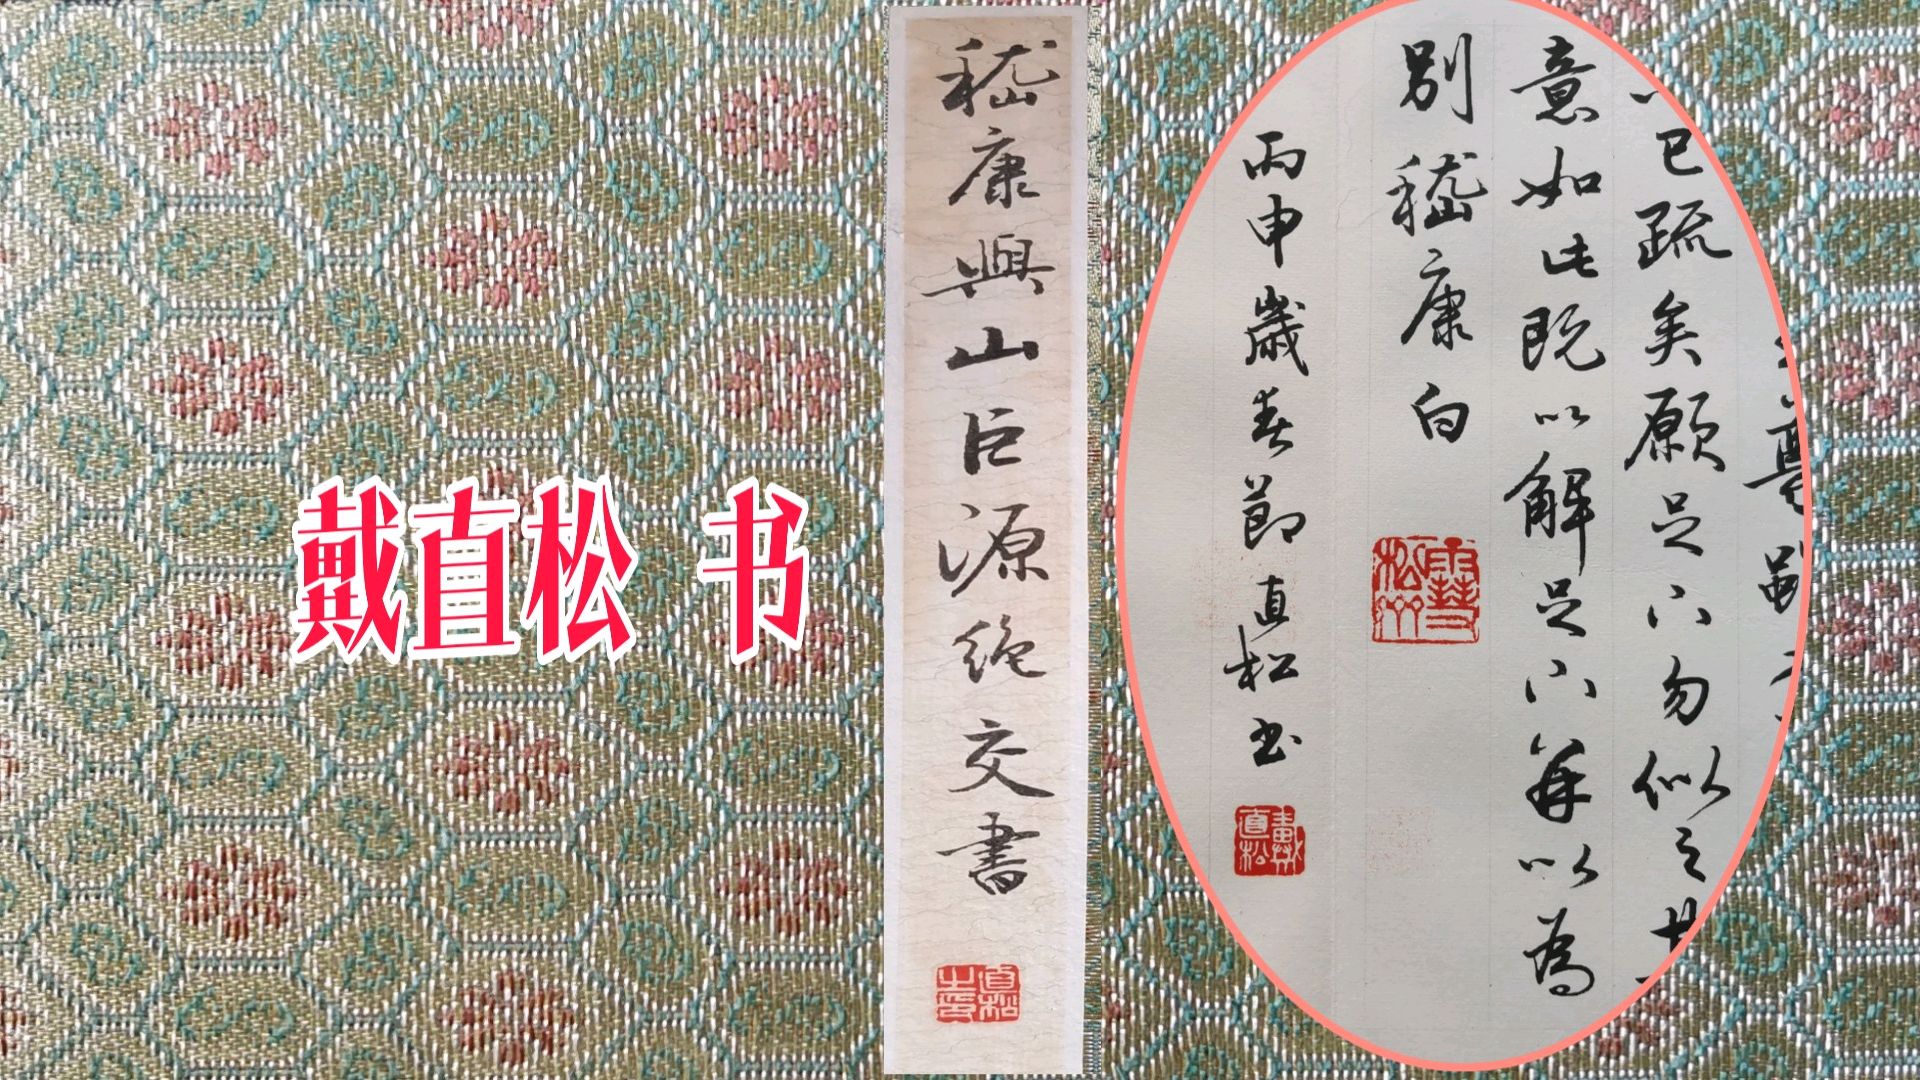 戴直松 书
嵇康與山巨源絶交書
直松之印
已疏矣願足下勿似之其
意如此既以解足下并以為
別嵇康白
丙申歲春節直松书
戴直松